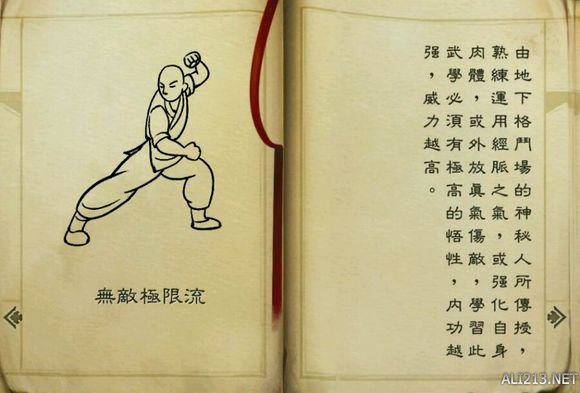 無敵極限流
由地下格鬥場的神秘人所傳授，
熟練運用經脈之氣，或强化自身
肉體，或外放眞氣傷敵，學習此
武學必須有極高的悟性，內功越
强，威力越高。
ALI213.NET